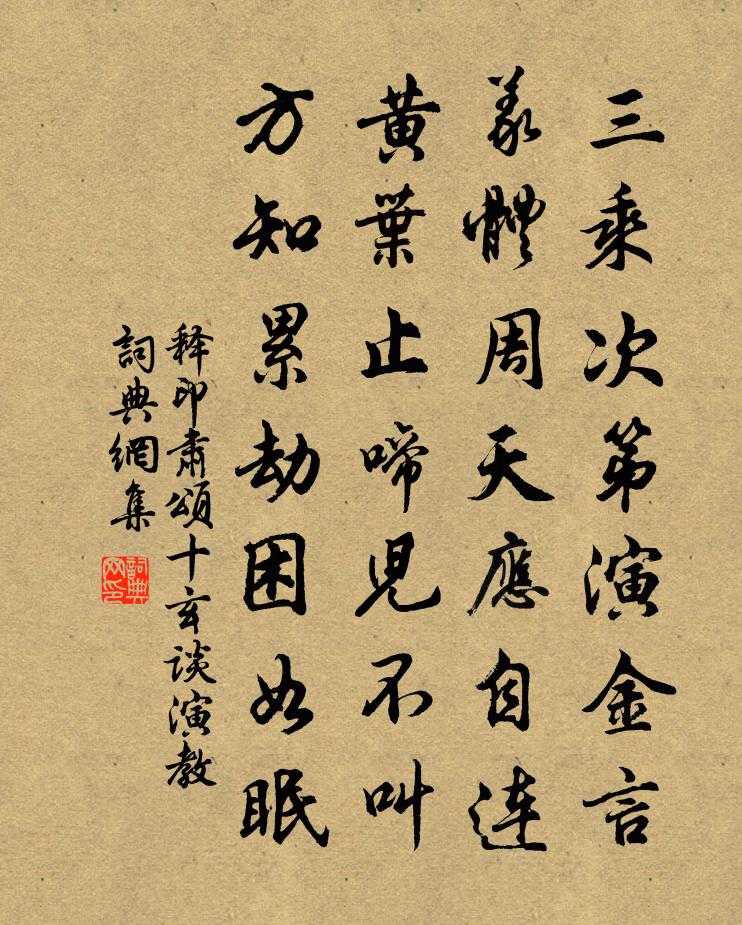 三乘次第演金言
義體周天應自連
黃葉止啼兒不叫
方知累劫困如眠
释印肅頌十玄谈演教
詞典網集
詞典網印